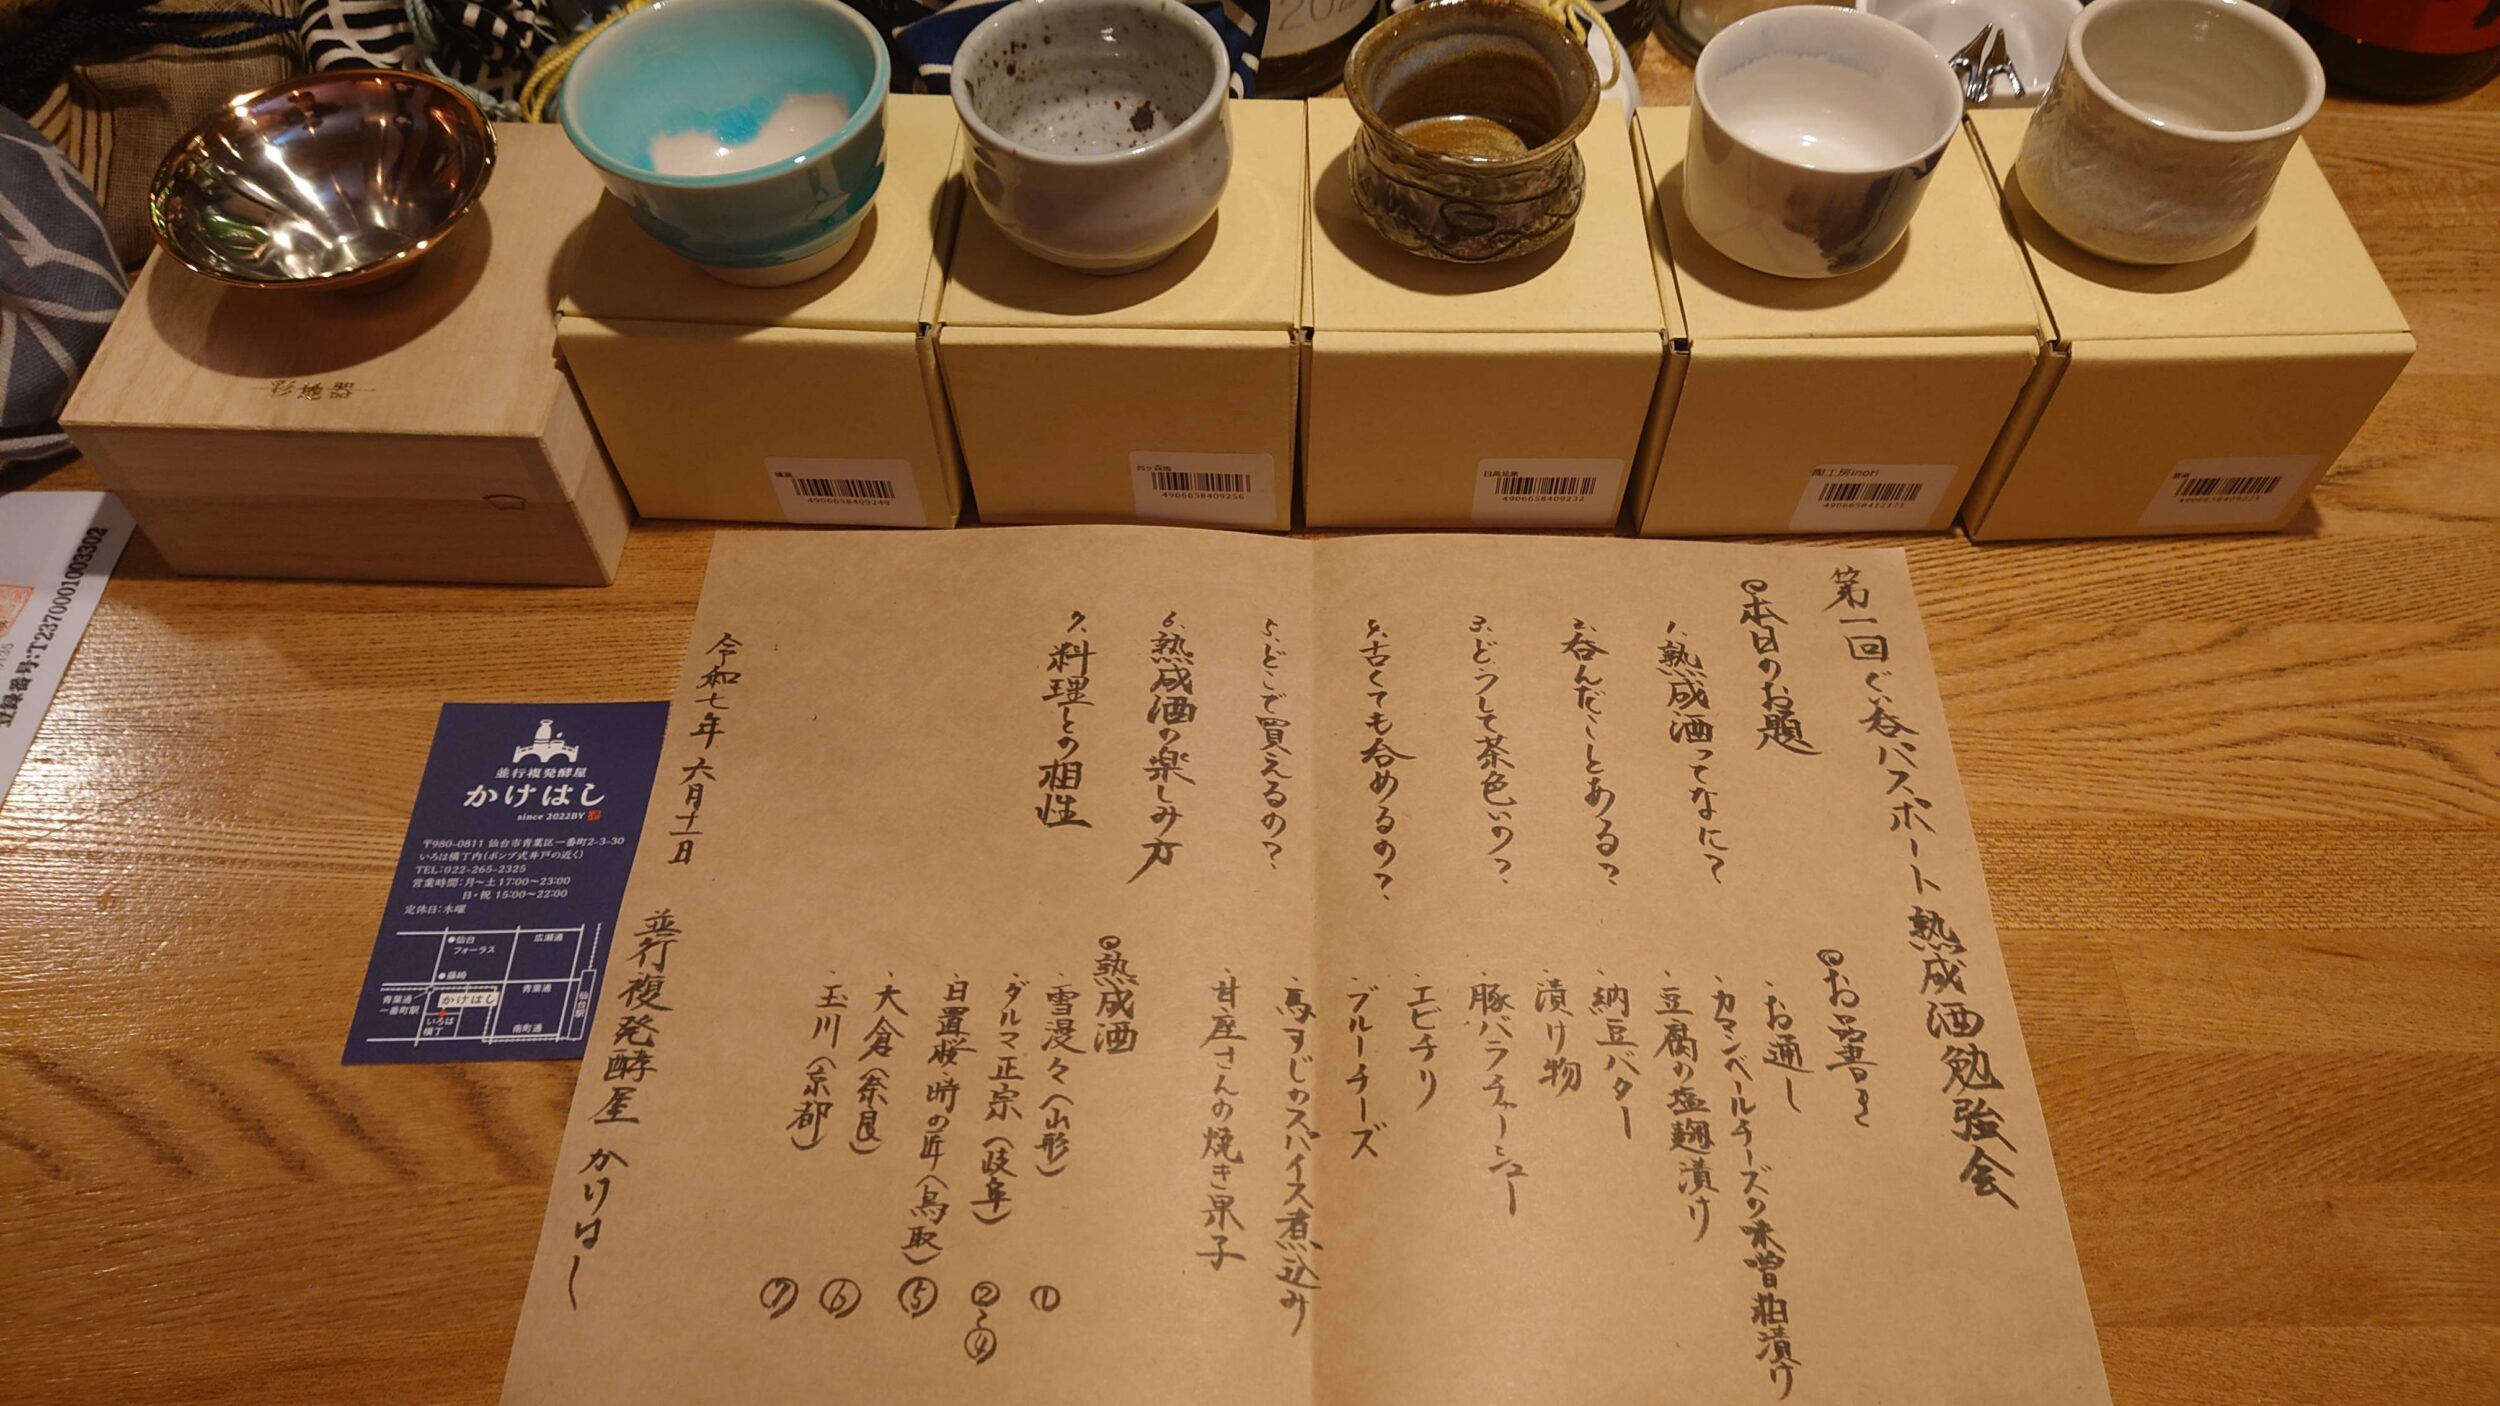 第一回ぐい呑パスポート熟成酒勉強会
本日のお題
1、熟成酒ってなに？
2、呑んだことある？
3、どうして茶色いの？
4、古くても呑めるの？
5、どこで買えるの？
6、熟成酒の楽しみ方
7、料理との相性
お品書き
・お通し
・カマンベールチーズの味噌粕漬け
・豆腐の塩麹漬け
・納豆バター
・漬け物
・豚バラチャーシュー
・エビチリ
・ブルーチーズ
・馬すじのスパイス煮込み
・甘座さんの焼き菓子
熟成酒
・雪漫々（山形） ①
・ダルマ正宗（岐阜） ②〜④
・日置桜・時の匠（鳥取） ⑤
・大倉（奈良） ⑥
・玉川（京都） ⑦
令和七年六月十一日 並行複発酵屋かけはし
並行複発酵屋
かけはし
since 2022BY
〒980-0811 仙台市青葉区一番町2-3-30
いろは横丁内（ポンプ式井戸の近く）
TEL：022-265-2325
営業時間：月〜土 17:00〜23:00
日・祝 15:00〜22:00
定休日：木曜
仙台フォーラス
広瀬通
藤崎
青葉通
青葉通一番町駅
かけはし
いろは横丁
南町通
仙台駅
登録番号：T2370001003302
4906658409249
4906658409256
日高見窯
4906658409232
陶工房inori
4906658412171
4906658409225
202